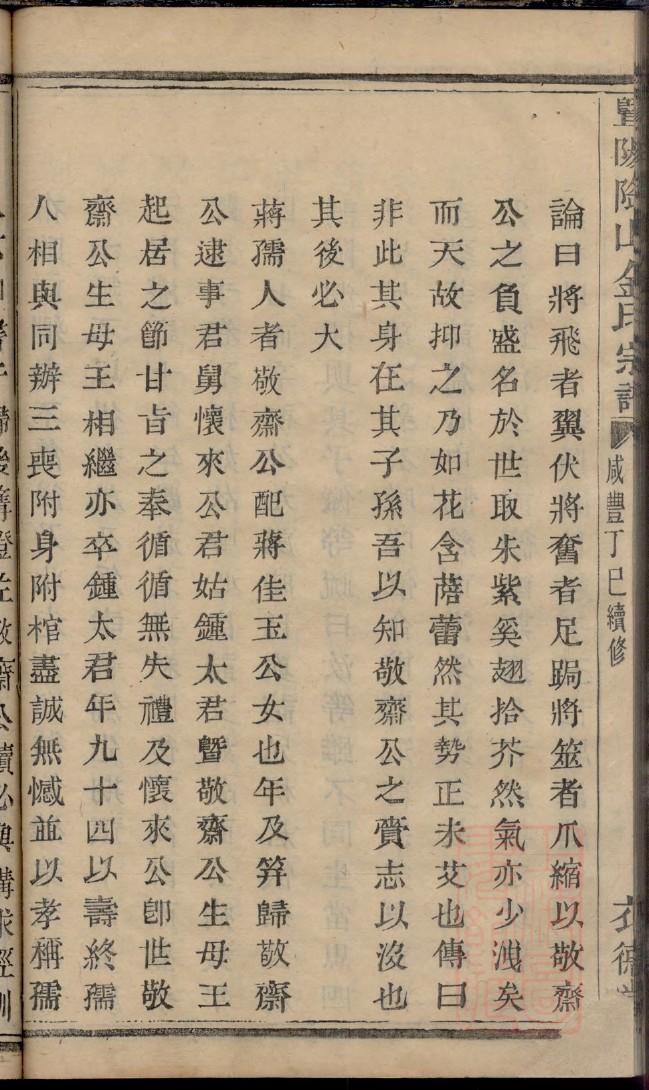 暨陽陰山金氏宗譜 咸豐丁巳續修
論曰將飛者翼伏將奮者足跼將筮者爪縮以敬齋
公之負盛名於世取朱紫奚翅拾芥然氣亦少洩矣
而天故抑之乃如花含蓓蕾然其勢正未艾也傳曰
非此其身在其子孫吾以知敬齋公之賫志以沒也
其後必大
蔣孺人者敬齋公配蔣佳玉公女也年及笄歸敬齋
公逮事君舅懷來公君姑鍾太君暨敬齋公生母王
起居之節甘旨之奉循循無失禮及懷來公卽世敬
齋公生母王相繼亦卒鍾太君年九十四以壽終孺
人相與同辦三喪附身附棺盡誠無憾並以孝稱孺